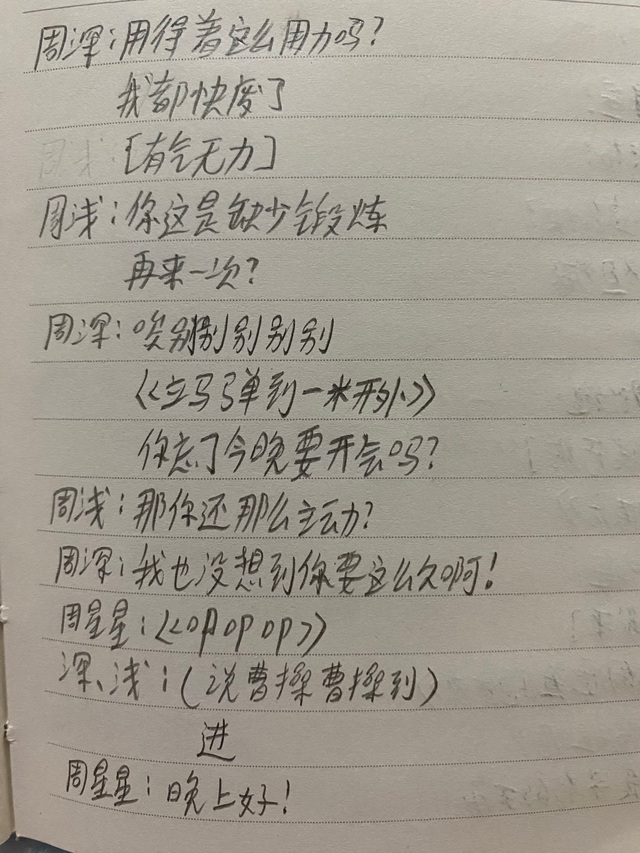 周深：用得着这么用力吗？
我都快废了
[有气无力]
周浅：你这是缺少锻炼
再来一次？
周深：唉别别别别别
《立马弹到一米形小》
你忘了今晚要开会吗？
周浅：那你还那么主动？
周深：我也没想到你要这么久啊！
周星星：《叩叩叩》
深、浅：（说曹操曹操到）
进
周星星：晚上好！